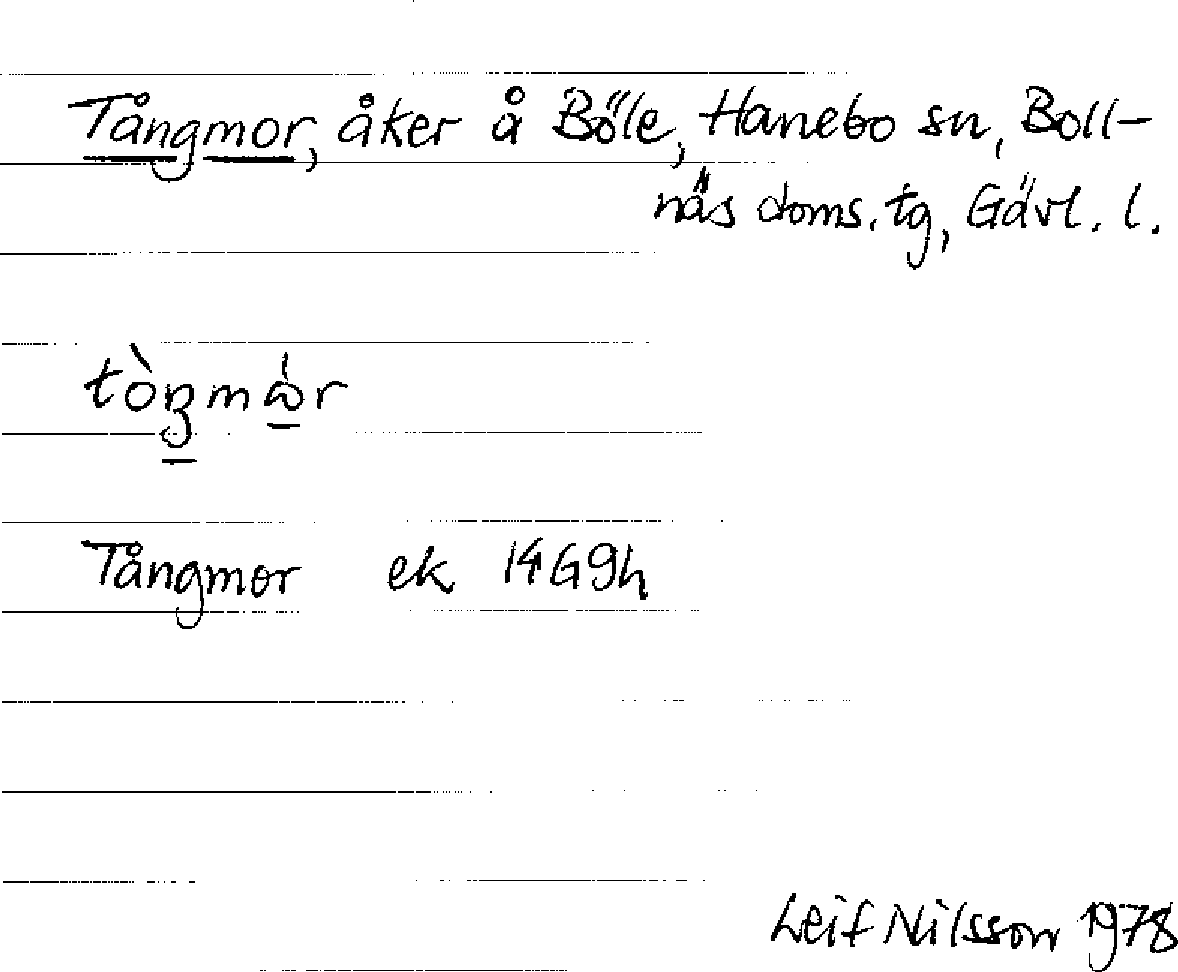 Tångmor, åker å Böle, Hanebo sn, Boll-
näs doms. tg, Gävl. l.
Tångmor ek 14G9h
Leif Nilsson 1978